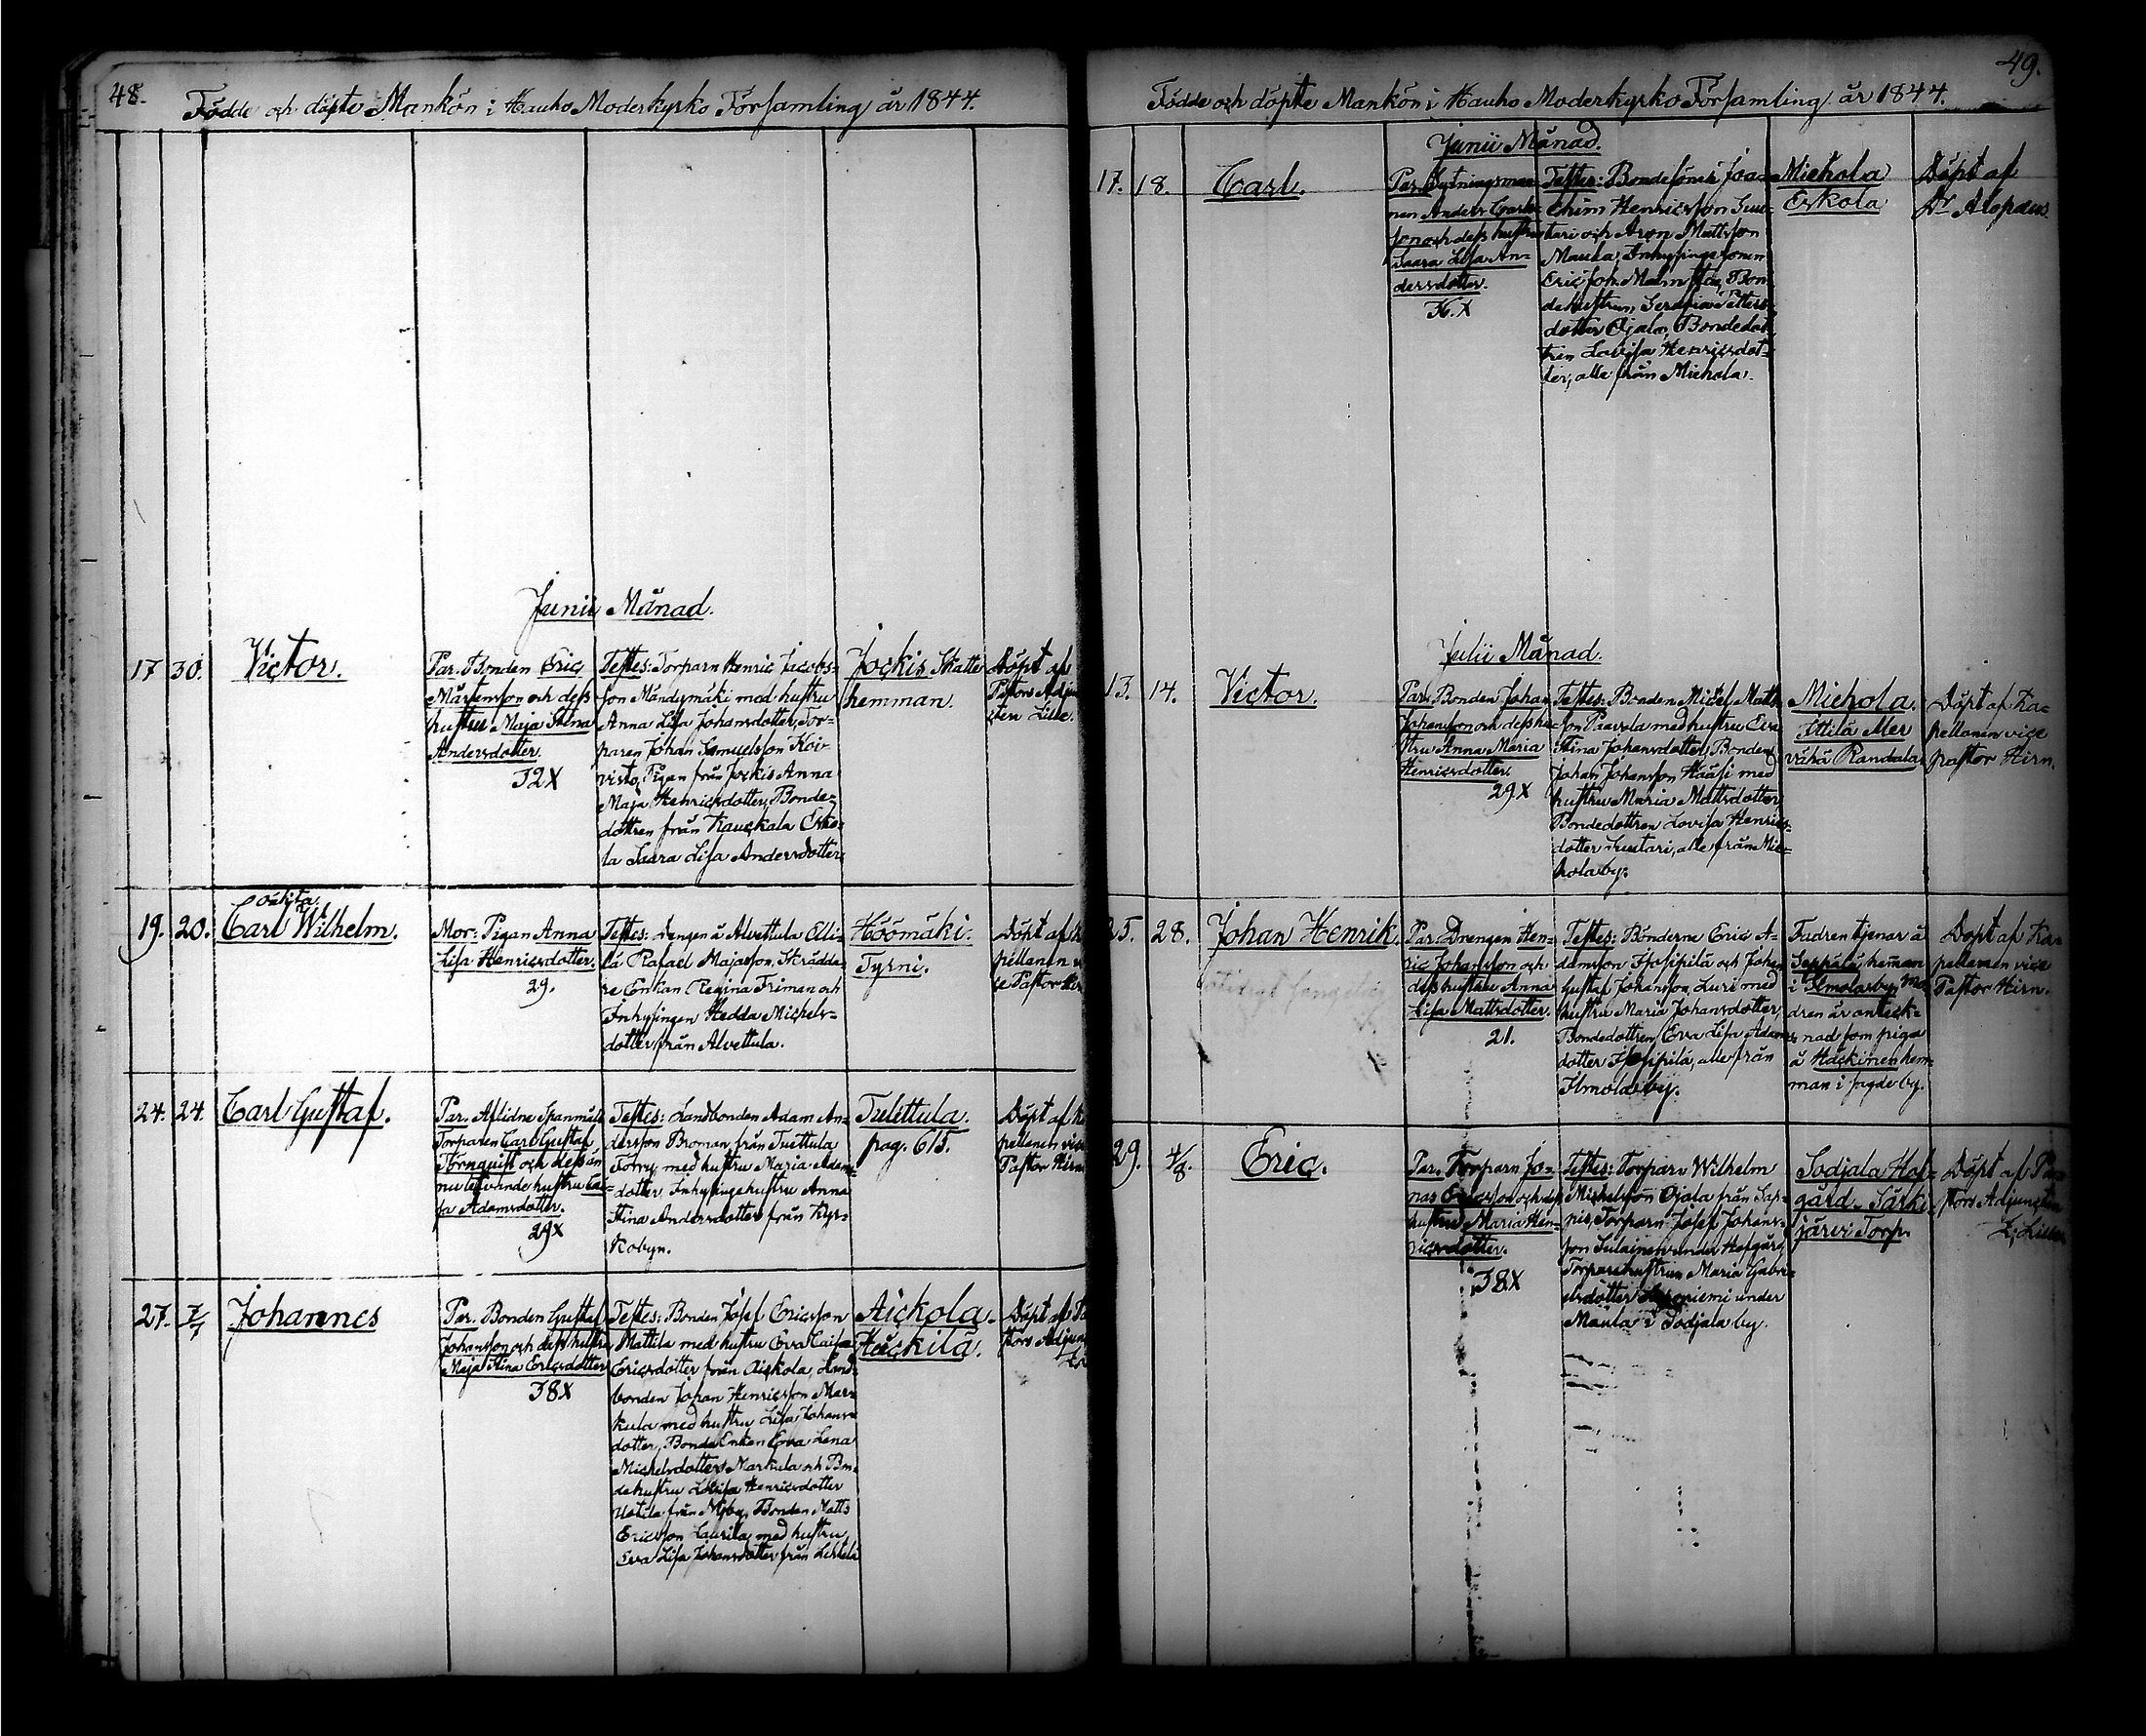 48.
Födde och döpte Mankön i Hauho Moderkyrko Församling år 1844.
Junii Månad.
17 30.
Victor.
Par. Bonden Eric
Mårtensson och dess
hustru Maja Stina
Andersdotter.
32X
Testes: Torparn Henric Jacobs-
son Mändymäki med hustru
Anna Lisa Johansdotter, Tor-
paren Johan Samuelsson Koi-
visto, Pigan från Jockis Anna
Maja Henricsdotter, Bonde-
dottren från Kauckala Erko-
la Saara Lisa Andersdotter.
Jockis Skatte
hemman.
Döpt af
Pastors Adju
19. 20.
oäkta
Carl Wilhelm.
Mor: Pigan Anna
Lisa Henricsdotter.
29.
Testes: Drengen å Alvettula Elli-
lä Rafael Majasson, Skrädda-
re Enkan Regina Friman och
Inhysingen Hedda Michels-
dotter från Alvettula.
Höömäki.
Tyrni.
Döpt af K
pellanen v
ce Pastor Hir
24. 24.
Carl Gustaf.
Par. Aflidne Spanmåls
Torparen Carl Gustaf
Törnquist och dess än
nu lefvande hustru
Adamsdotter.
29X
Testes: Landbonden Adam An-
dersson Broman från Tuittula
Torry med hustru Maria Adams
dotter, Inhysingehustru Anna
Stina Andersdotter från Kyr-
kobyn.
Tulettula.
pag. 615.
Döpt af Ka
pellanen vice
Pastor Hirn
27. 7/7
Johannes
Par. Bonden Gustaf
Johansson och dess hustru
Maja Stina Ericsdotter
38X
Testes: Bonden Josef Ericsson
Mattila med hustru Eva Caisa
Ericsdotter från Aickola, Land
bonden Johan Henricsson Mar-
kula med hustru Lisa Johans-
dotter, Bonde Enkan Eva Lena
Michelsdotter Markula och Bon-
dehustru Lovisa Henricsdotter
Uotila från Nyby, Bonden Matts
Ericsson Laurila med hustru
Eva Lisa Johansdotter från
Aickola.
Häckilä.
Döpt af Pa
stors Adjun
49.
Födde och döpte Mankön i Hauho Moderkyrko Församling år 1844.
Junii Månad.
17. 18.
Carl.
Par. Rytningsman-
nen Anders Carls-
son och dess hustru
Saara Lisa An-
dersdotter.
36.X
Testes: Bondesonen Joa-
chim Henricsson Suu-
tari och Aron Mattsson
Maula, Inhysinge sonen
Eric Joh. Malm Bon-
dehustrun Serafia Petters-
dotter Ojala, Bondedot-
tren Lovisa Henricsdot-
ter, alle från Miehola.
Miehola
Erkola
Döpt af
Dr Alopæus.
Julii Månad.
13. 14.
Victor.
Par. Bonden Johan
Johansson och dess hu-
stru Anna Maria
Henricsdotter.
29X
Testes: Bonden Michel Matts-
son Paavola med hustru Eva
Stina Johansdotter, Bonden
Johan Johansson Haasi med
hustru Maria Mattsdotter
Bondedottren Lovisa Henrics-
dotter Suutari, alle från Mie-
hola by.
Miehola.
Attilä Mer
vähä Randala.
Döpt af Ka-
pellanen vice
pastor Hirn.
25. 28.
Johan Henrik.
Par. Drengen Hen-
ric Johansson och
dess hustru Anna
Lisa Mattsdotter.
21.
Testes: Bönderne Eric A-
damsson Isopipilä och Johan
Gustaf Johansson Luri med
hustru Maria Johansdotter,
Bondedottren Eva Lisa Adams
dotter Isopipilä, alle från
Ilmola by.
Fadren tjenar å
Seppälä hemman
i Ilmola by, Mo-
dren är anteck-
nad som piga
å Häckinen hem-
man i sagde by.
Döpt af Ka-
pellanen vice
Pastor Hirn.
29. 4/8.
Eric.
Par. Torparn Jo-
nas Ericsson och dess
hustru Maria Hen-
ricsdotter.
38X
Testes: Torparn Wilhelm
Michelsson Ojala från Sap-
pis, Torparn Josef Johans-
son Sulainen under Hofgård,
Torparehustrun Maria Gabri-
elsdotter under
Maula i Sodjala by.
Sodjala Hof-
gård. Särki-
järvi Torp.
Döpt af Pa-
stors Adjuncten